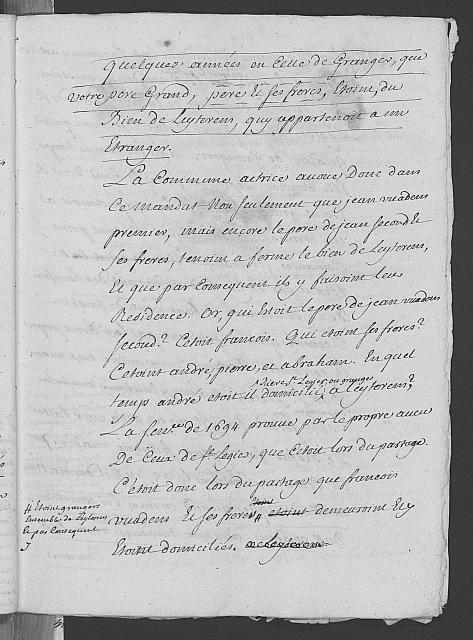 quelques années en celle de Granger, que
votre pere Grand, pere & ses freres, Etoint, du
Bien de Leyterens, quy appartenoit a un
Etranger.
La Commune actrice avoue Donc dans
Ce mandat Non seulement que jean vuadens
premier, mais encore le pere de jean second &
ses freres, tenoint a ferme le bien de Leyterens,
Et que par Consequent ils y faisoint leur
Residence. Or, qui Etoit le pere de jean vuadens
second? C'etoit francois. Qui etoint ses freres?
C'etoint andre, pierre, et abraham. En quel
St. Legier, ou granger
temps andre etoit il domicilié a Leyterens?
La sen.ce de 1694 prouve par le propre aveu
De Ceux de St. Legier, que C'etoit lors du partage.
C'étoit donc lors du partage que francois
vuadens & ses freres # etoint demeuroint Et y
# Etoint grangers
Ensemble de Leyterens
& par Consequent
Etoint domiciliés.